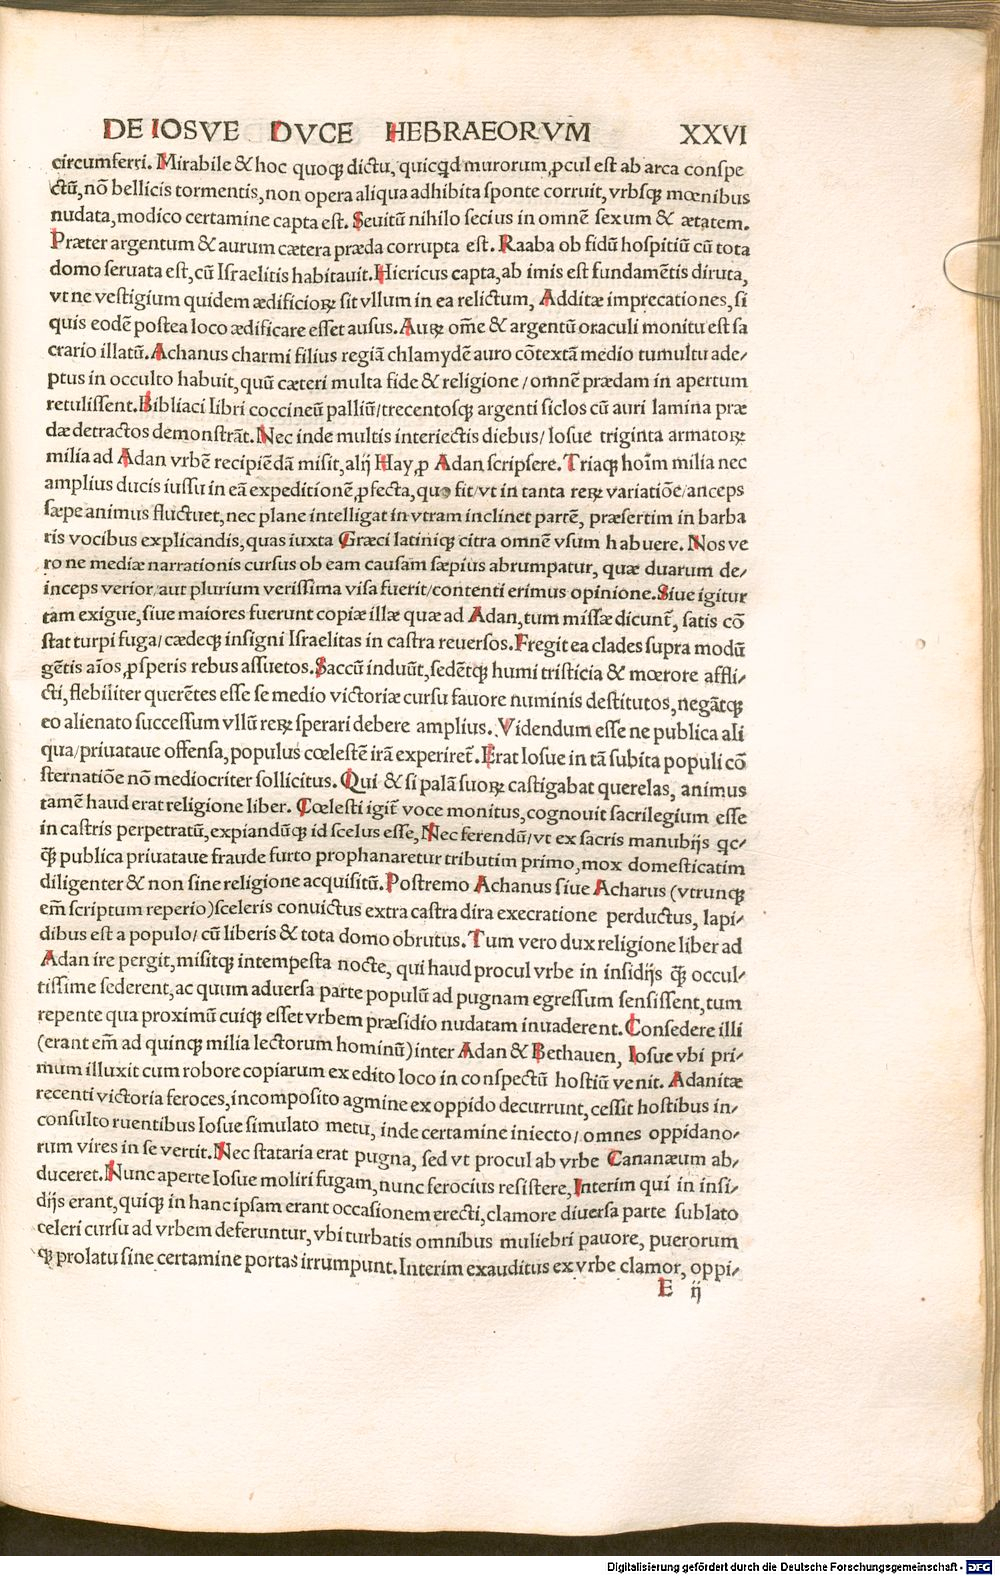 DE IOSVE DVCE HEBRAEORVM XXVI
circumferri. Mirabile & hoc quoqꝫ dictu, quicq̃d murorum ꝓcul est ab arca conspe
ctũ, nõ bellicis tormentis, non opera aliqua adhibita sponte corruit, vrbsqꝫ mœnibus
nudata, modico certamine capta est. Seuitũ nihilo secius in omnẽ sexum & ætatem.
Præter argentum & aurum cætera præda corrupta est. Raaba ob fidũ hospitiũ cũ tota
domo seruata est, cũ Israelitis habitauit. Hiericus capta, ab imis est fundamẽtis diruta,
vt ne vestigium quidem ædificioꝝ sit vllum in ea relictum, Additæ imprecationes, si
quis eodẽ postea loco ædificare esset ausus. Auꝝ om̃e & argentũ oraculi monitu est sa
crario illatũ. Achanus charmi filius regiã chlamydẽ auro cõtextã medio tumultu ade/
ptus in occulto habuit, quũ cæteri multa fide & religione / omnẽ prædam in apertum
retulissent. Bibliaci libri coccineũ palliũ/ trecentosqꝫ argenti siclos cũ auri lamina præ
dæ detractos demonstrãt. Nec inde multis interiectis diebus/ Iosue triginta armatoꝝ
milia ad Adan vrbẽ recipiẽdã misit, alij Hay, ꝓ Adan scripsere. Triaqꝫ hoĩm milia nec
amplius ducis iussu in eã expeditionẽ ꝓfecta, quo fit/ vt in tanta reꝝ variatiõe/ anceps
sæpe animus fluctuet, nec plane intelligat in vtram inclinet partẽ, præsertim in barba
ris vocibus explicandis, quas iuxta Græci latiniqꝫ citra omnẽ vsum habuere. Nos ve
ro ne mediæ narrationis cursus ob eam causam sæpius abrumpatur, quæ duarum de/
inceps verior/ aut plurium verissima visa fuerit/ contenti erimus opinione. Siue igitur
tam exigue, siue maiores fuerunt copiæ illæ quæ ad Adan, tum missæ dicunt̃, satis cõ
stat turpi fuga/ cædeqꝫ insigni Israelitas in castra reuersos. Fregit ea clades supra modũ
gẽtis aĩos, ꝓsperis rebus assuetos. Saccũ induũt, sedẽtqꝫ humi tristicia & mœrore affli/
cti, flebiliter querẽtes esse se medio victoriæ cursu fauore numinis destitutos, negãtqꝫ
eo alienato successum vllũ reꝝ sperari debere amplius. Videndum esse ne publica ali
qua/ priuataue offensa, populus cœlestẽ irã experiret̃. Erat Iosue in tã subita populi cõ
sternatiõe nõ mediocriter sollicitus. Qui & si palã suoꝝ castigabat querelas, animus
tamẽ haud erat religione liber. Cœlesti igit̃ voce monitus, cognouit sacrilegium esse
in castris perpetratũ, expiandũqꝫ id scelus esse, Nec ferendũ/ vt ex sacris manubijs qc̃
q̃ꝫ publica priuataue fraude furto prophanaretur tributim primo, mox domesticatim
diligenter & non sine religione acquisitũ. Postremo Achanus siue Acharus (vtrunqꝫ
em̃ scriptum reperio) sceleris conuictus extra castra dira execratione perductus, lapi/
dibus est a populo/ cũ liberis & tota domo obrutus. Tum vero dux religione liber ad
Adan ire pergit, misitqꝫ intempesta nocte, qui haud procul vrbe in insidijs q̃ꝫ occul/
tissime sederent, ac quum aduersa parte populũ ad pugnam egressum sensissent, tum
repente qua proximũ cuiqꝫ esset vrbem præsidio nudatam inuaderent. Consedere illi
(erant em̃ ad quinqꝫ milia lectorum hominũ) inter Adan & Bethauen, Iosue vbi pri/
mum illuxit cum robore copiarum ex edito loco in conspectũ hostiũ venit. Adanitæ
recenti victoria feroces, incomposito agmine ex oppido decurrunt, cessit hostibus in/
consulto ruentibus Iosue simulato metu, inde certamine iniecto/ omnes oppidano/
rum vires in se vertit. Nec stataria erat pugna, sed vt procul ab vrbe Cananæum ab/
duceret. Nunc aperte Iosue moliri fugam, nunc ferocius resistere, Interim qui in insi/
dijs erant, quiqꝫ in hanc ipsam erant occasionem erecti, clamore diuersa parte sublato
celeri cursu ad vrbem deferuntur, vbi turbatis omnibus muliebri pauore, puerorum
qꝫ prolatu sine certamine portas irrumpunt. Interim exauditus ex vrbe clamor, oppi/
E ij
Digitalisierung gefördert durch die Deutsche Forschungsgemeinschaft - DFG